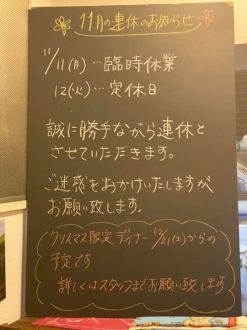 11月の連休のお知らせ
11/11(月)…臨時休業
12(火)…定休日
誠に勝手ながら連休と
させていただきます。
ご迷惑をおかけいたしますが
お願い致します。
クリスマス限定ディナー12/21(土)からの
予定です
詳しくはスタッフまでお願い致します